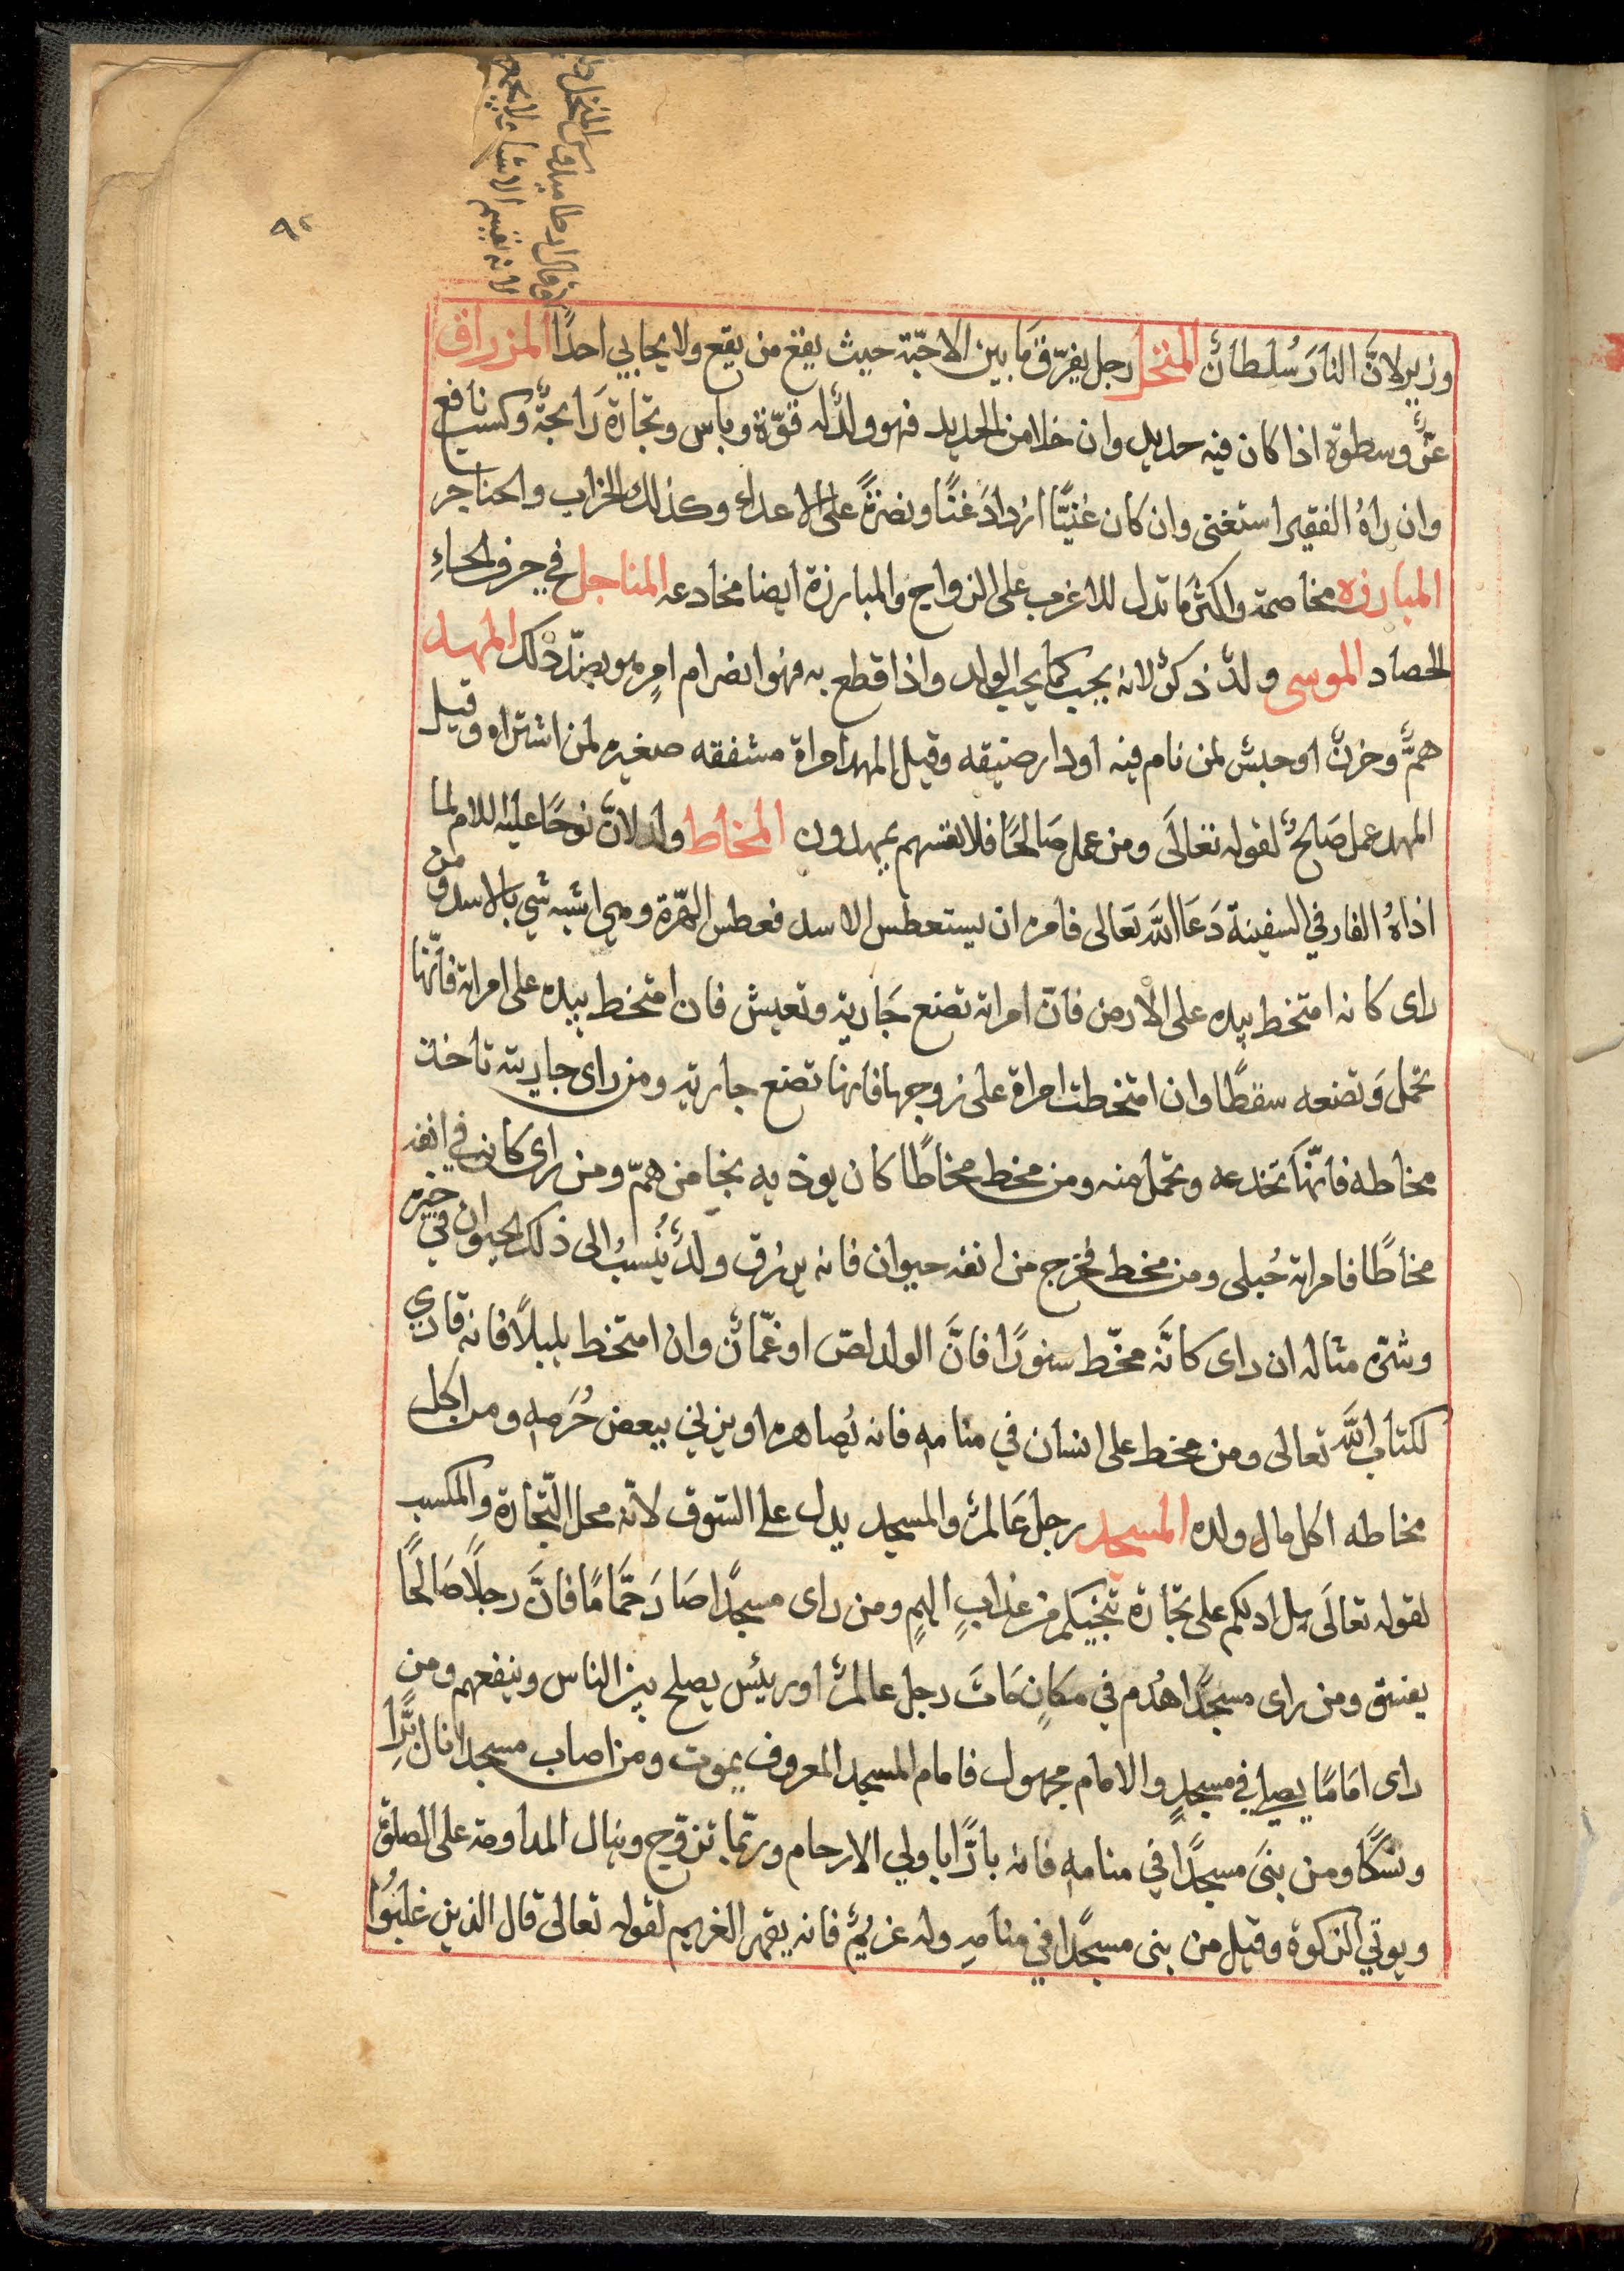 وزير لانّ النارَ سُلطانٌ المنخل رجل يفرّق مَا بين الاحبّة حيث يقع من يقع ولا يحابي احدًا المزراق
عزٌّ وسطوة اذا كان فيه حديد وان خلا من الحديد فهو ولدٌ له قوّة وباس وتجارة رَابحةٌ وكسب نافع
وان راهُ الفقير استغنى وان كان غنيًّا ازدادَ غنًا ونصرةً على الاعداء وكذلك الحراب والخناجر
المبارزه مخاصمة واكثر مَا تدل للاعزب على الزواج والمبارزة ايضا مخادعه المناجل في حرف الحاءِ
الحصاد الموسى ولدٌ ذكرٌ لانه يجب كما يجب الولد واذا قطع به فهو انصرام امرٍ هو بصدد ذلك المهد
همٌّ وحزنٌ او حبسٌ لمن نام فيه او دار ضيقه وقيل المهد امراة مشفقه صغيره لمن اشتراه وقيل
المهد عمل صَالحٌ لقوله تعَالَى ومن عمل صَالحًا فلانفسهم يمهدون المخاط ولد لانّ نوحًا عليه السلام لما
اذاهُ الفار في السفينة دَعَا اللهَ تعَالى فامره ان يستعطس الاسد فعطس الهرّة وهي اشبه شي بالاسد ومن
راى كانه امتخط بيده على الارض فانّ امراته تضع جَارية وتعيش فان امتخط بيده على امراته فانّها
تحمل وَتضعه سقطًا وان امتخطت امراة على زوجها فانها تضع جارية ومن راى جاريته تاخذ
مخاطه فانّها تخدعه وتحمل منه ومن مخط مخاطًا كان يوذيه نجا من همّ ومن راى كان في انفه
مخاطًا فامراته حُبلى ومن مخط فخرج من انفه حيوان فانه يرزق ولدٌ يُنسبُ الى ذلك الحيوان في خيره
وشرّه مثاله ان راى كانَّه مخّط سنورًا فانَّ الولد لصّ او غمّازٌ وان امتخط بلبلًا فانه قاري
لكتاب اللهِ تعالى ومن مخط على انسان في منامه فانه يُصاهره او يزني ببعض حُرَمه ومن اكل
مخاطه اكل مال ولده المسجد رجل عَالمٌ والمسجد يدل على السّوق لانّه محل التّجارة والمكسب
لقوله تعالَى هل ادلكم على تجَارة تنجيكم من عذابٍ اليمٍ ومن راى مسجدًا صَارَ حمَّامًا فانَّ رجلًا صَالحًا
يفسق ومن راى مسجدًا هُدم في مكانٍ مَاتَ رجل عالمٌ او رئيس يصلح بين الناس وينفعهم ومن
راى امَامًا يصلي في مسجدٍ والامام مجهول فامام المسجد المعروف يموت ومن اصاب مسجدا نال برًّا
ونسكًا ومن بنَى مسجدًا في منامه فانه بارًّا باولي الارحام وربّما تزوّج وينال المداومة على الصلوة
ويوتي الزكوة وقيل من بنى مسجدًا في منامهِ وله غريمٌ فانه يقهر الغريم لقوله تعالى قال الذين غلبُوا